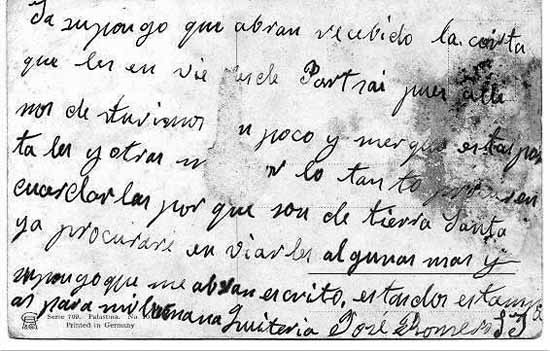 Ya supongo que abran recebido la carta
que les en vie desde Portsai pues alli
nos detuvimos un poco y merque estas pos
tales y otras lo tanto
cuardarlas por que son de tierra Santa
ya procurare en viarles algunas mas y
supongo que me abran escrito, estas dos estamp
as para mi hermana Quiteria José Romero SJ
Serie 709. Palästina. No. 10
Printed in Germany